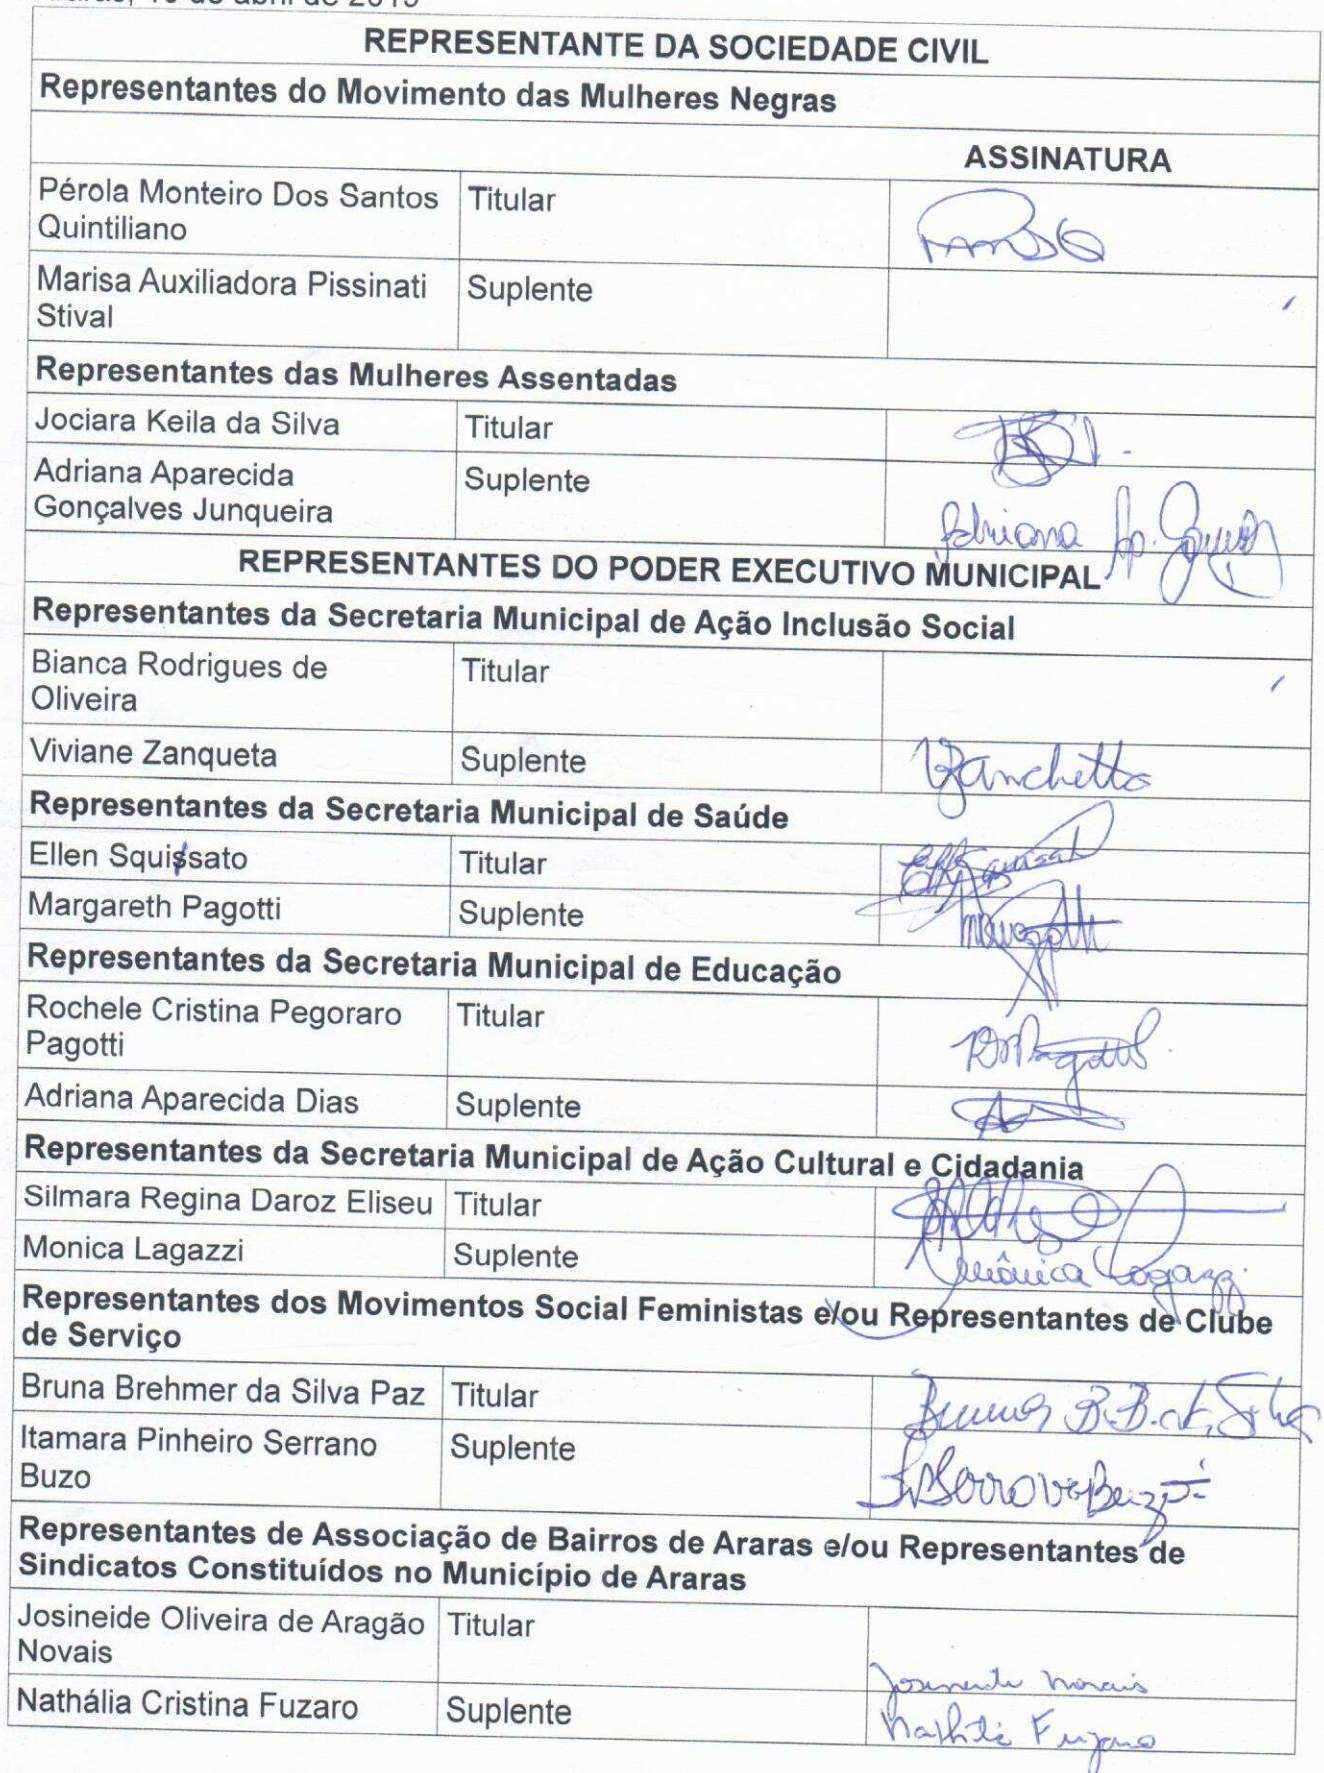 de abril de 2019
REPRESENTANTE DA SOCIEDADE CIVIL
Representantes do Movimento das Mulheres Negras
ASSINATURA
Pérola Monteiro Dos Santos Titular
Quintiliano
Marisa Auxiliadora Pissinati Suplente
Stival
Representantes das Mulheres Assentadas
Jociara Keila da Silva Titular
Adriana Aparecida Suplente
Gonçalves Junqueira
Adriana Ap.
REPRESENTANTES DO PODER EXECUTIVO MUNICIPAL
Representantes da Secretaria Municipal de Ação Inclusão Social
Bianca Rodrigues de Titular
Oliveira
Viviane Zanqueta Suplente VZanchetta
Representantes da Secretaria Municipal de Saúde
Ellen Squissato Titular
Margareth Pagotti Suplente
Representantes da Secretaria Municipal de Educação
Rochele Cristina Pegoraro Titular
Pagotti
Adriana Aparecida Dias Suplente
Representantes da Secretaria Municipal de Ação Cultural e Cidadania
Silmara Regina Daroz Eliseu Titular
Monica Lagazzi Suplente Mônica Lagazzi
Representantes dos Movimentos Social Feministas e/ou Representantes de Clube
de Serviço
Bruna Brehmer da Silva Paz Titular Bruna B. B. da Silva
Itamara Pinheiro Serrano Suplente
Buzo
Representantes de Associação de Bairros de Araras e/ou Representantes de
Sindicatos Constituídos no Município de Araras
Josineide Oliveira de Aragão Titular
Novais
Josineide Novais
Nathália Cristina Fuzaro Suplente Nathália Fuzaro